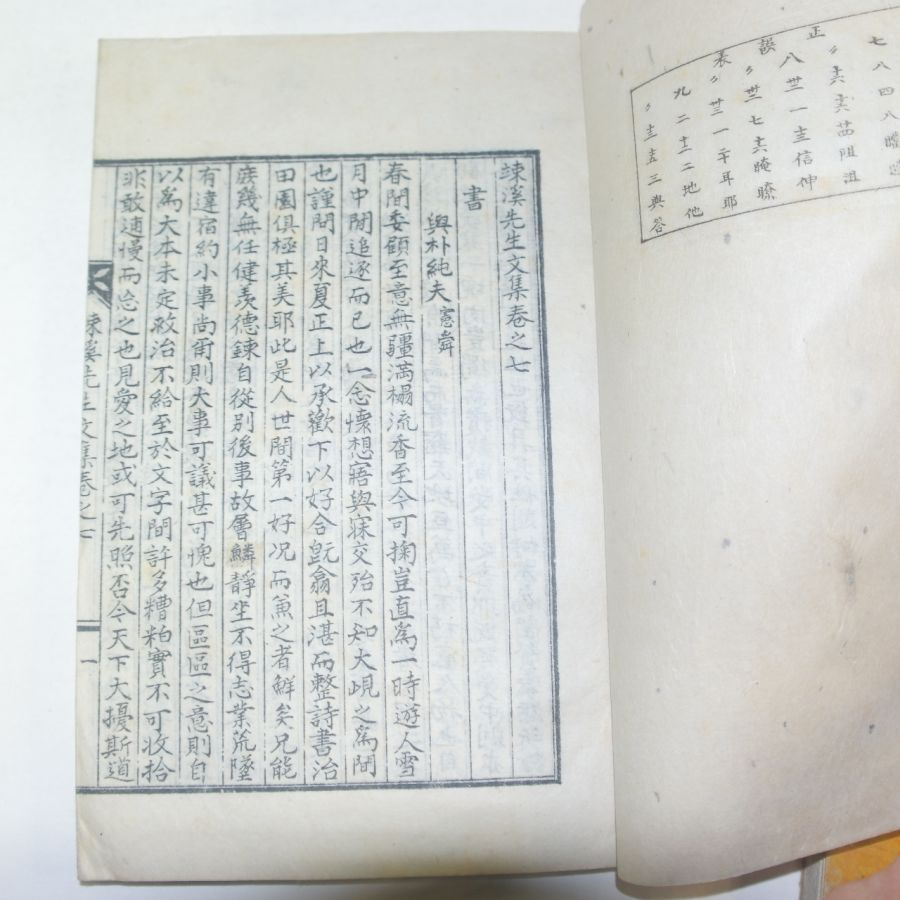 正誤表
七八四八
八卅一主信伸
九二十二二地他
竦溪先生文集卷之七
書
與朴純夫憲舜
春間委顧至意無疆滿榻流香至今可掬豈直爲一時遊人雪
月中閒追逐而已也一念懷想寤與寐交殆不知大峴之爲間
也謹問日來夏正上以承歡下以好合旣翕且湛而整詩書治
田園俱極其美耶此是人世間第一好况而兼之者鮮矣兄能
庶幾無任健羨德鍊自從別後事故層鱗靜坐不得志業荒墜
有違宿約小事尚爾則大事可議甚可愧也但區區之意則自
以爲大本未定救治不給至於文字間許多糟粕實不可收拾
非敢逋慢而之也見愛之地或可先照否今天下大擾斯道
竦溪先生文集卷之七
一